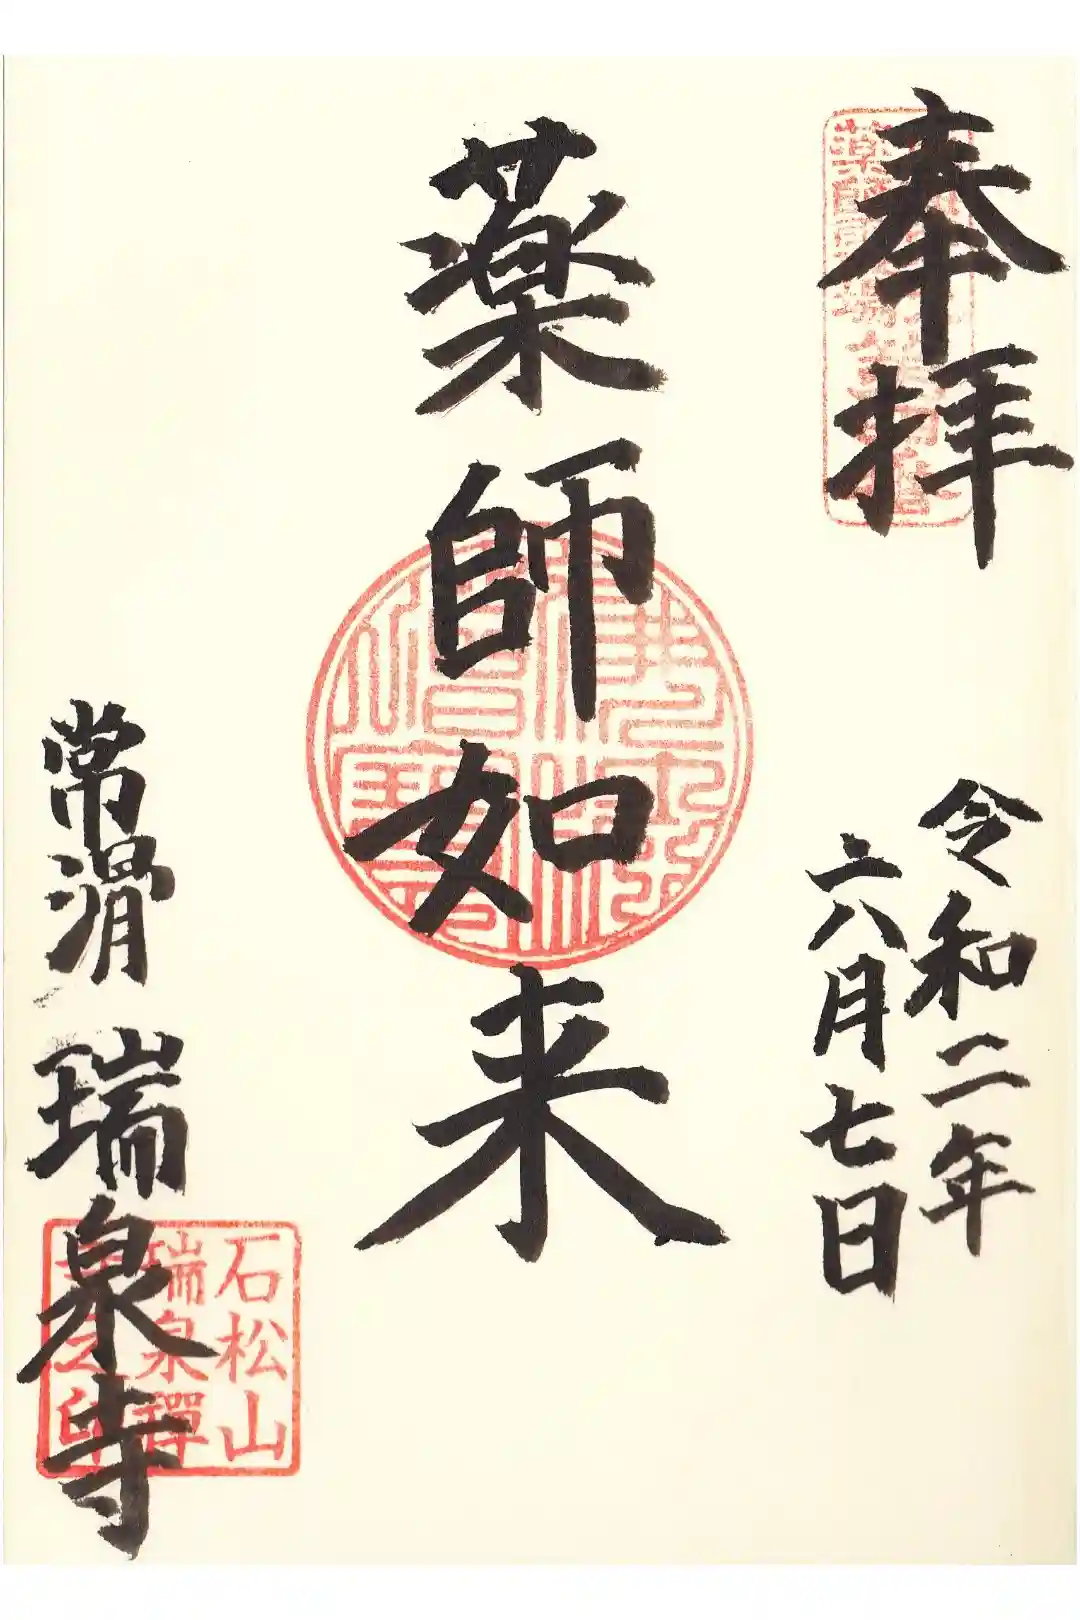 奉拝
令和二年
六月七日
薬師如来
常滑 瑞泉寺
石松山
瑞泉禪
寺之印